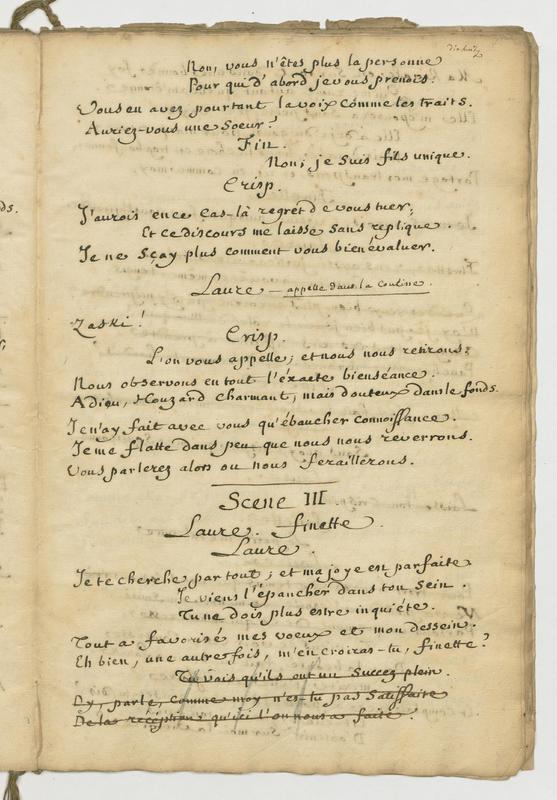 Non, vous n'êtes plus la personne
Pour qui d'abord je vous prenois.
Vous en avez pourtant la voix comme les traits.
Auriez-vous une Soeur?
Fin.
Non; je suis fils unique.
Crisp.
J'aurois en ce Cas-là regret de vous tuer;
Et ce discours me laisse sans replique.
Je ne sçay plus comment vous bien évaluer.
Laure — appelle dans la Couline.
Zaski!
Crisp.
L'on vous appelle; et nous nous retirons:
Nous observons en tout l'éxacte bienséance.
Adieu, Houzard charmant, mais douteux dans le fonds.
Je n'ay fait avec vous qu'ébaucher connoissance.
Je me flatte dans peu que nous nous reverrons.
Vous parlerez alors ou nous feraillerons.
Scene III
Laure. finette.
Laure.
Je te cherche par tout; et ma joye est parfaite
Je viens l'épancher dans ton Sein.
Tu ne dois plus estre inquiéte.
Tout a favorisé mes voeux et mon dessein.
Eh bien, une autre fois, m'en croiras-tu, finette?
Tu vois qu'ils ont un Succez plein.
parle, Comme moy n'es-tu pas Satisfaite
De la réception qu'ici l'on nous a faite.